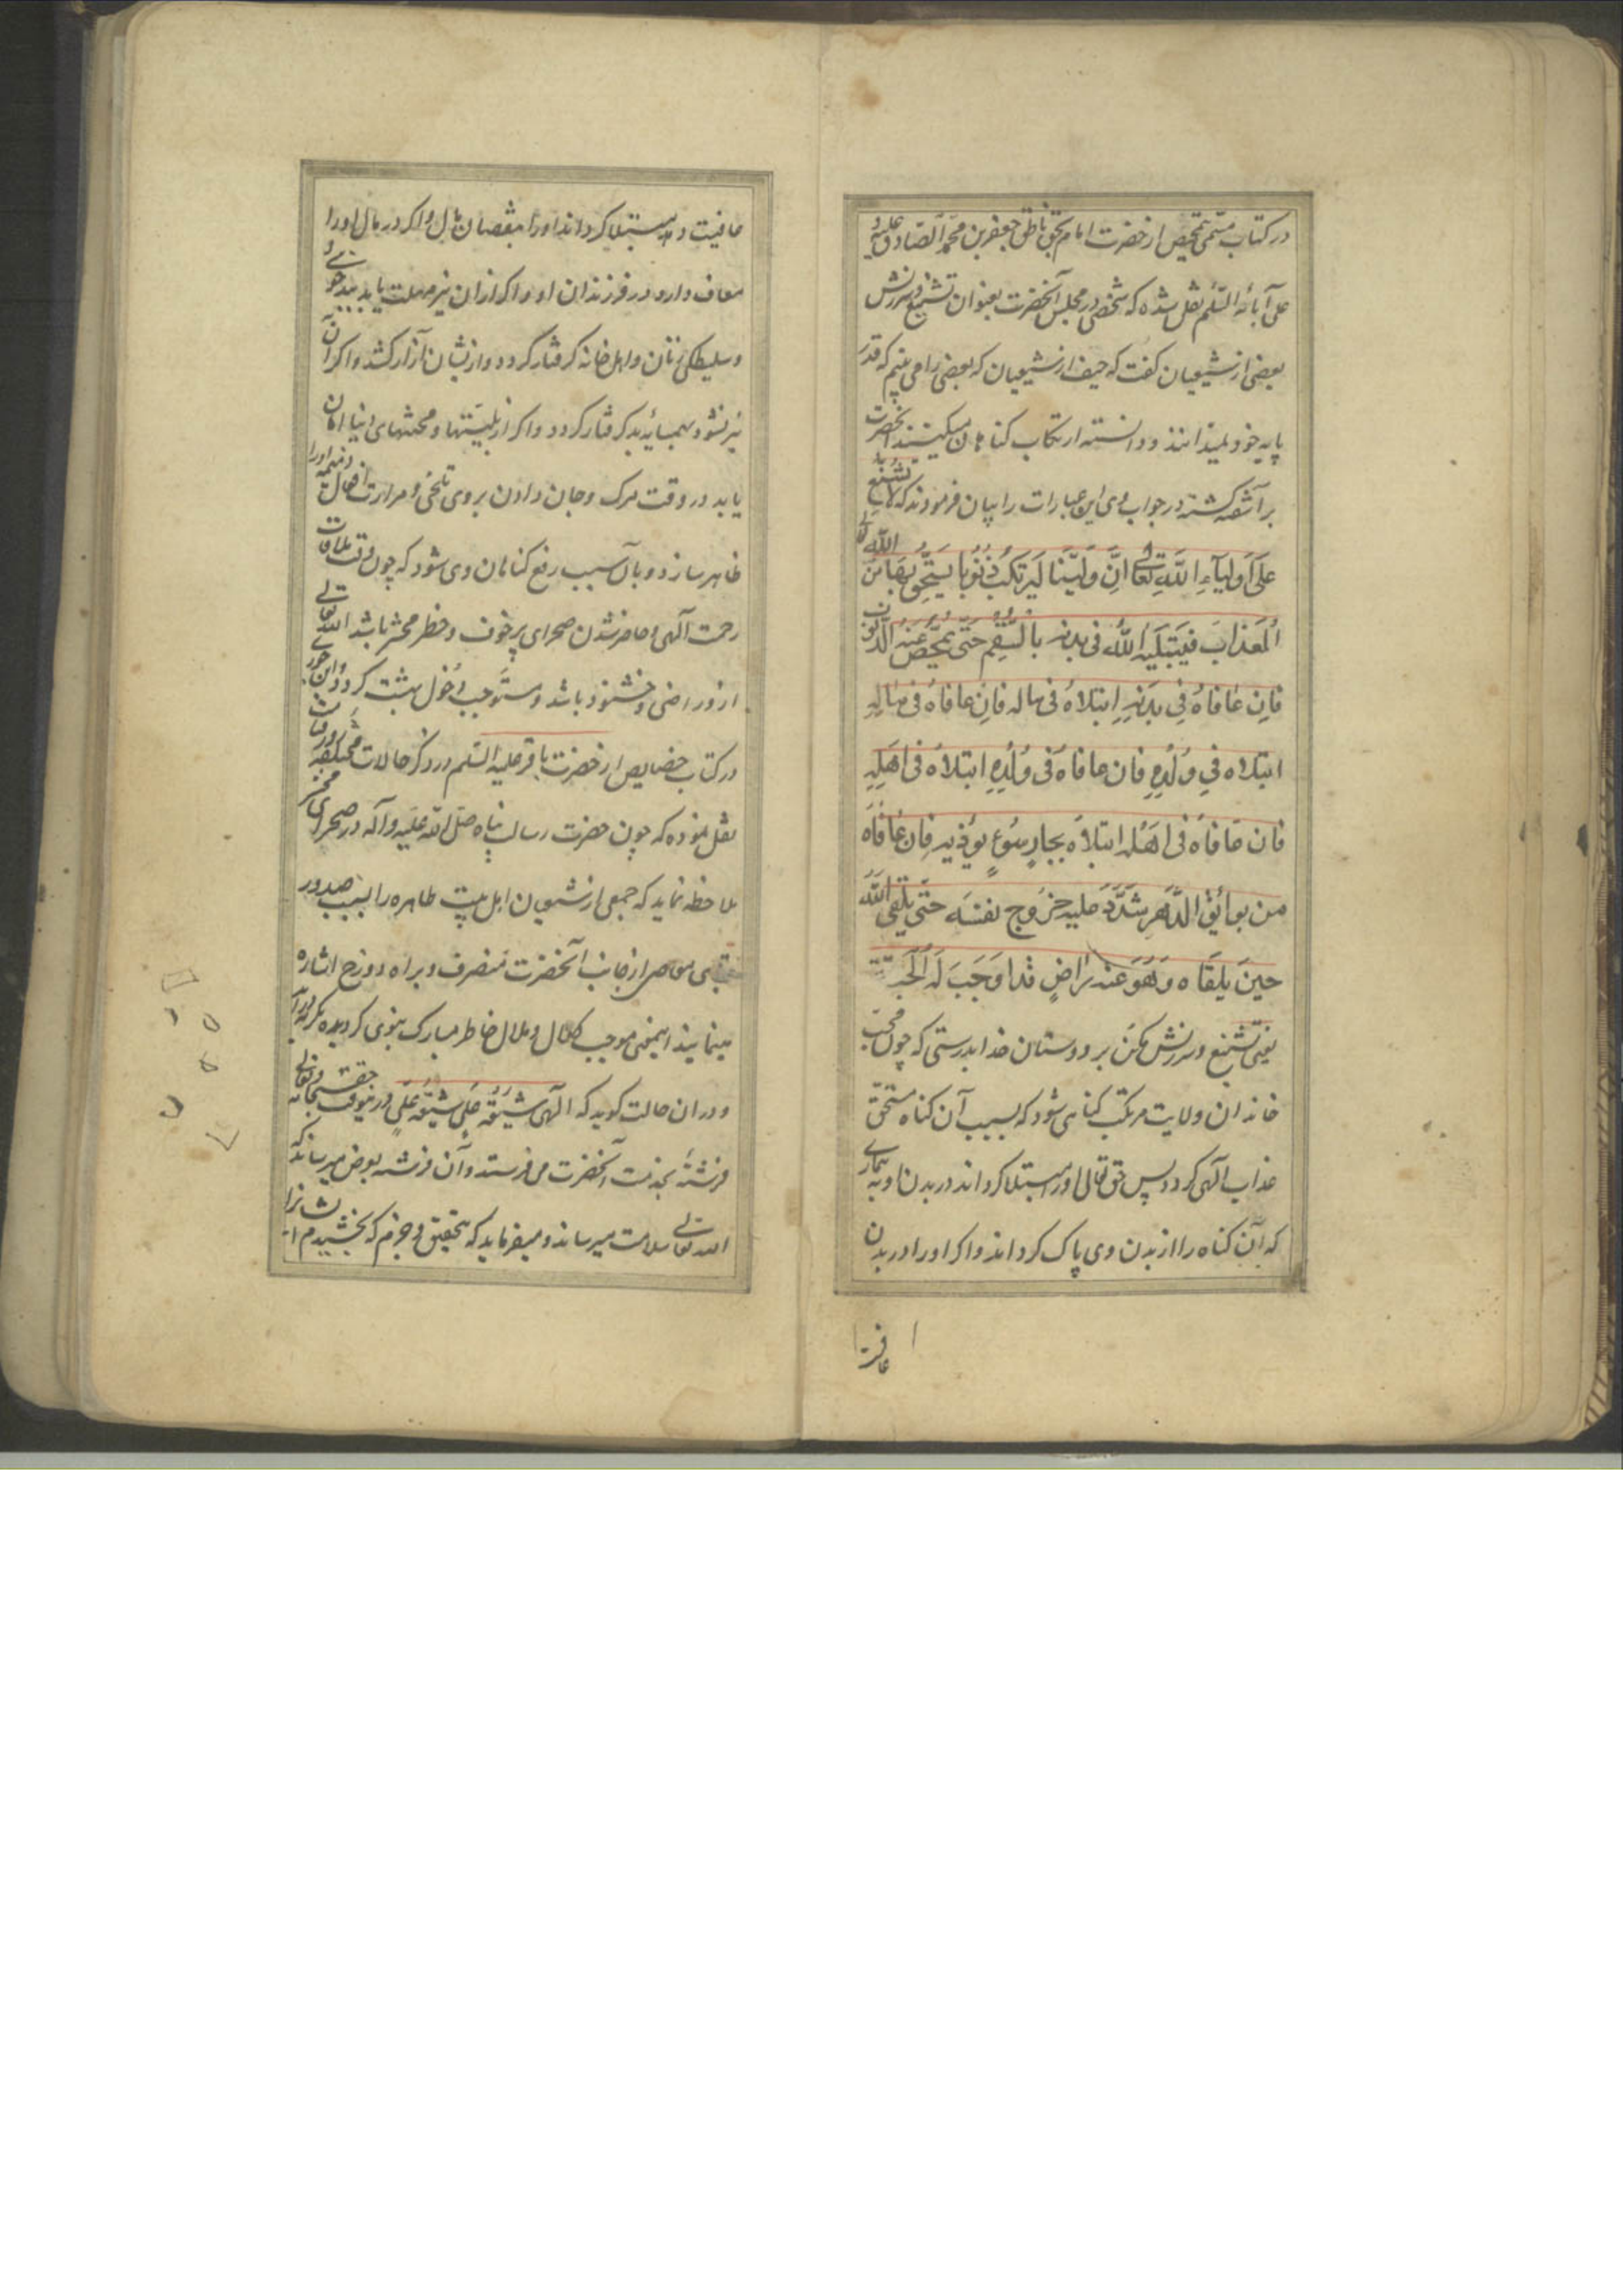 در کتاب مسمی بتمحیص از حضرت امام بحق ناطق جعفر بن محمد الصادق علیه و
علی آبائه السلم نقل شده که شخصی در مجلس آنحضرت بعنوان تشنیع و سرزنش
بعضی از شیعیان کفت که حیف از شیعیان که بعضی را می بینم که قدر
پایه خود نمیدانند و دانسته ارتکاب کناهان میکنند آنحضرت
بر آشفته کشته در جواب وی این عبارات را بیان فرمودند که لا تشنع
علی اولیاء الله تعالی ان ولینا لیرتکب ذنوبا یستحق بها من الله تعالی
العذاب فیبتلیه الله فی بدنه بالسقم حتی یمحص عنه الذنوب
فان عافاه فی بدنه ابتلاه فی ماله فان عافاه فی ماله
ابتلاه فی ولده فان عافاه فی ولده ابتلاه فی اهله
فان عافاه فی اهله ابتلاه بجار سوء یوذیه فان عافاه
من بوائق الدهر شدد علیه خروج نفسه حتی یلقی الله
حین یلقاه و هو عنه راض قد اوجب له الجنة
یعنی تشنیع و سرزنش مکن بر دوستان خدا بدرستی که چون محب
خاندان ولایت مرتکب کناهی شود که بسبب آن کناه مستحق
عذاب الهی کردد پس حق تعالی او را مبتلا کرداند در بدن او به بیماری
که آن کناه را از بدن وی پاک کرداند و اکر او را در بدن
عافیت
عافیت دهد مبتلا کرداند او را بنقصان مال و اکر در مال او را
معاف دارد در فرزندان او و اکر از آن نیز مهلت یابد ببدخوئی
و سلیطکی زنان و اهل خانه کرفتار کردد و ازیشان آزار کشد و اکر آن
نیز نشود بهمسایه بد کرفتار کردد و اکر از بلیتها و محنتهای دنیا امان
یابد در وقت مرک و جان دادن بر وی تلخی و مرارت افعال ذمیمه او را
ظاهر سازد و بآن سبب رفع کناهان وی شود که چون وقت ملاقات
رحمت الهی و حاضر شدن صحرای پر خوف و خطر محشر باشد الله تعالی
ازو راضی و خشنود باشد و مستوجب دخول بهشت کردد و آن
در کتاب خصایص از حضرت باقر علیه السلم در ذکر حالات
نقل نموده که چون حضرت رسالت پناه صلی الله علیه و آله در صحرای محشر
ملاحظه نماید که جمعی از شیعیان اهل بیت طاهره را بسبب صدور
بعضی معاصی از جانب آنحضرت منصرف و براه دوزخ اشاره
مینمایند اینمعنی موجب کلال و ملال خاطر مبارک نبوی کردیده بکریه درآید
و در آن حالت کوید که الهی شیعة علی شیعة علی درینوقت حقسبحانه و تعالی
فرشتهٔ بخدمت آنحضرت می فرستد و آن فرشته بعرض میرساند که
الله تعالی سلامت میرساند و میفرماید که بتحقیق و جزم که بخشیدم ایشانرا